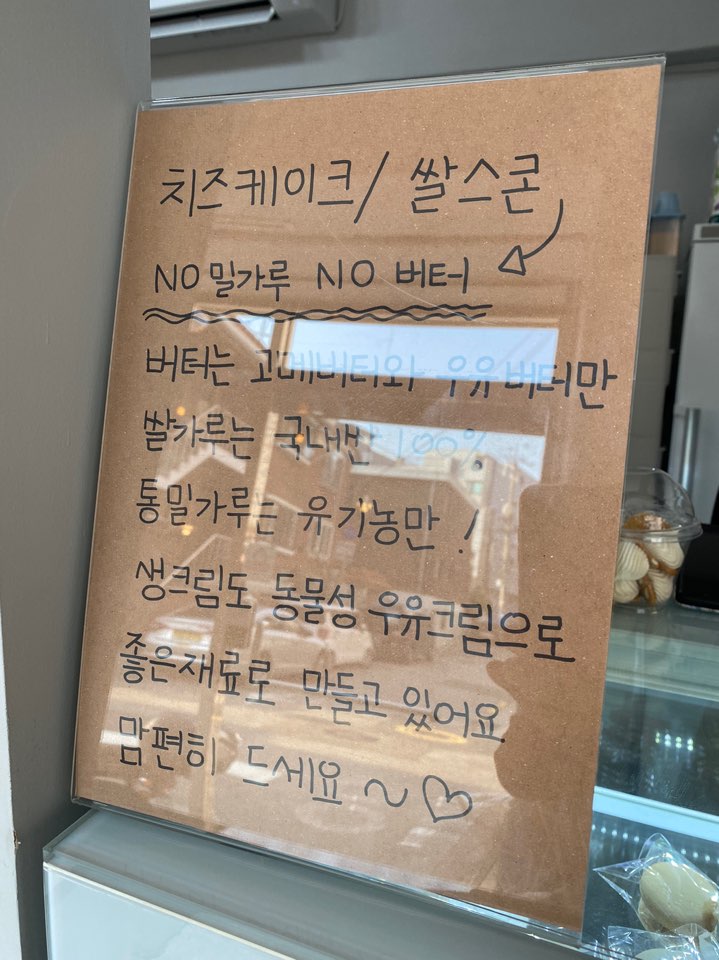 치즈케이크/ 쌀스콘
NO 밀가루 NO 버터
버터는 고메버터와 우유버터만
쌀가루는 국내싼 100%
통밀가루는 유기농만!
생크림도 동물성 우유크림으로
좋은재료로 만들고 있어요.
맘편히 드세요~♡